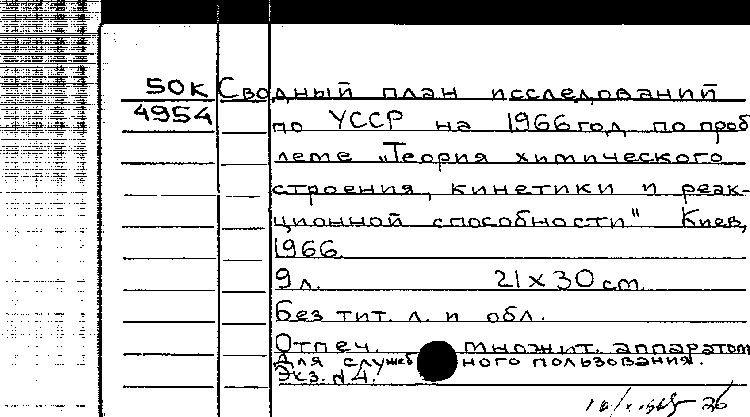 50К Сводный план исследований
4954 по УССР на 1966 год по проб
леме „Теория химического
строения, кинетики и реак-
ционной способности" Киев,
1966.
9 л. 21 x 30 см.
Без тит. л. и обл.
Отпеч. множит. аппаратом
Для служеб ного пользования.
Экз. N 4.
26